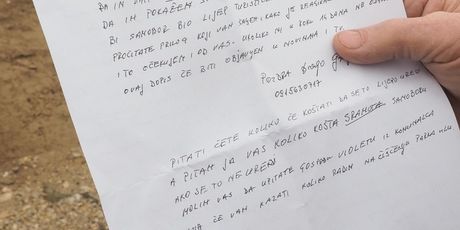 DA IH POKAŽEM
BI SAMOBOR BIO LIJEP TURISTIČ
PROČITATE PRILOG KOJI VAM ŠALJEM, KAKO JE REAGIRA
I TO OČEKUJEM I OD VAS - UKOLIKO MI U ROKU 15 DANA NE
OVAJ DOPIS ĆE BITI OBJAVLJEN U NOVINAMA I TV.
POZDRAV
0915630717
PITATI ĆETE KOLIKO ĆE KOŠTATI DA SE TO LIJEPO UREDI
A PITAM JA VAS KOLIKO KOŠTA SRAMOTA SAMOBORU
AKO SE TO NE UREDI
MOLIM VAS DA UPITATE GOSPOĐU VIOLETU IZ KOMUNALCA
ONA ĆE VAM KAZATI KOLIKO RADIM NA ČIŠĆENJU PARKA